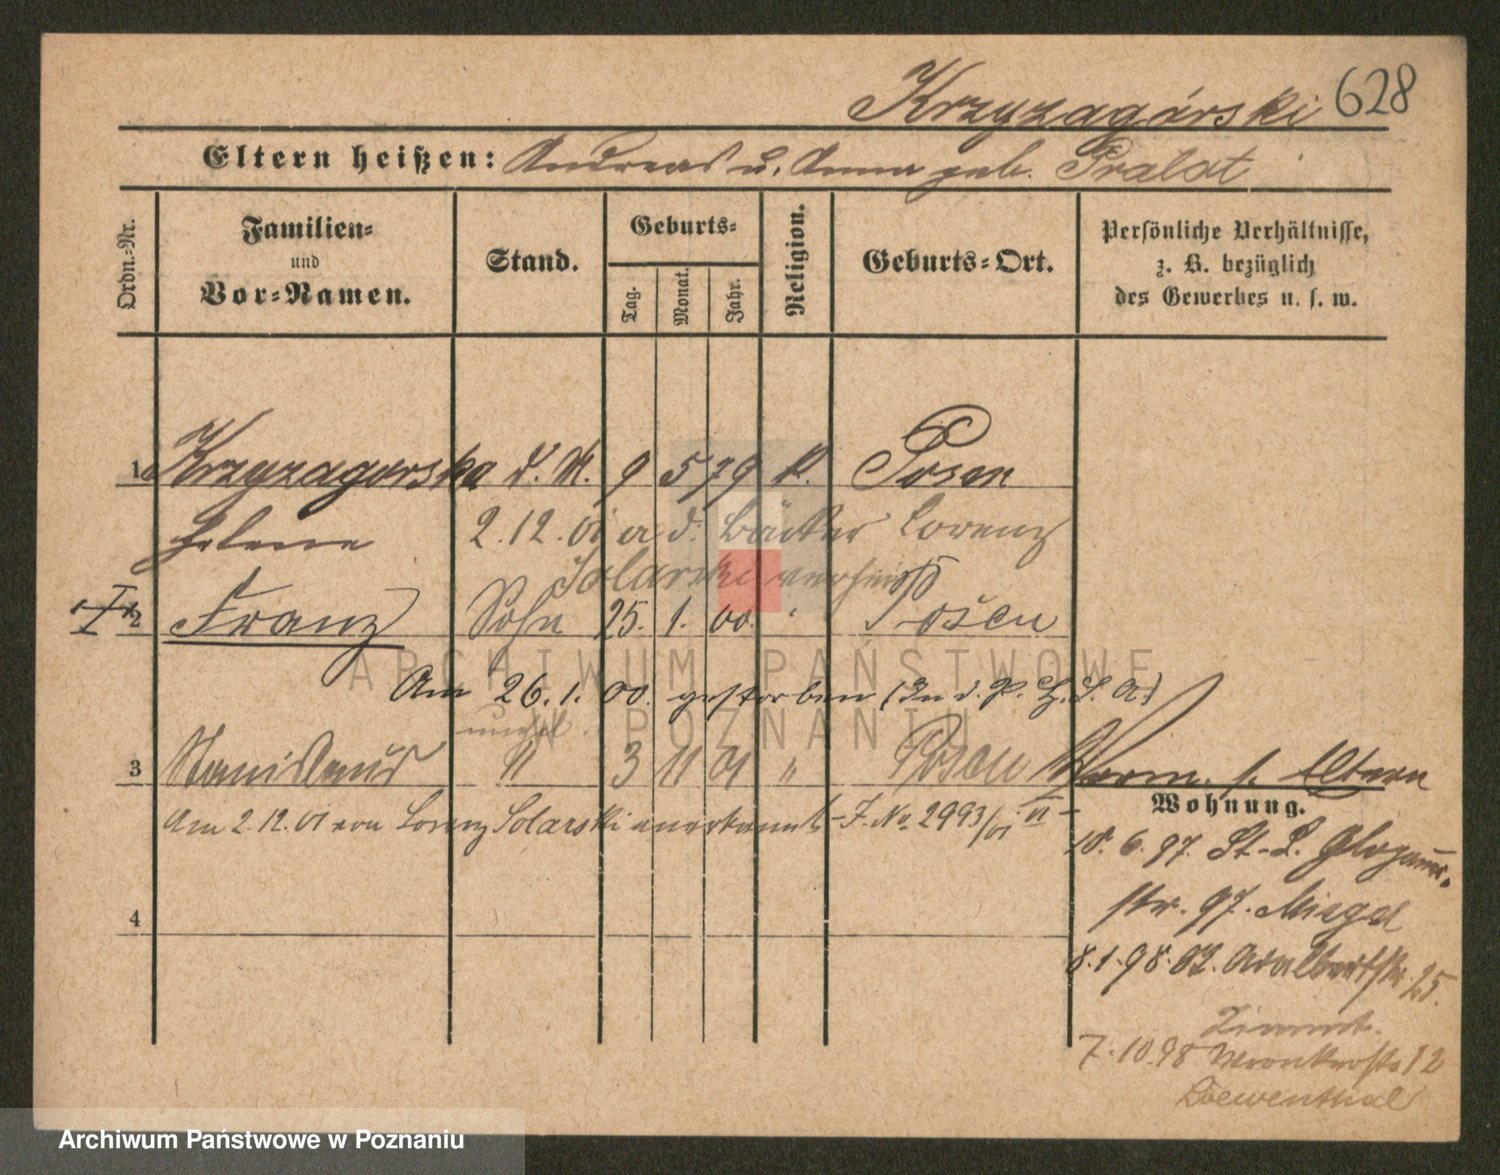 Krzyzagórski 628
Eltern heißen: Andreas u. Anna geb. Pralat
Ordn.-Nr.
Familien-
und
Vor-Namen.
Stand.
Geburts-
Tag.
Monat.
Jahr.
Religion.
Geburts-Ort.
Persönliche Verhältnisse,
z. B. bezüglich
des Gewerbes u. s. w.
1 Krzyzagorska d. M. 9 5 79 k. Posen
Helene 2.12.01 a d. Bäcker Lorenz
Solarski verheir.
2 Franz Sohn 25. 1. 00. " Posen
Am 26.1.00. gestorben (In d. P. H. S. A.)
unehel.
3 Stanislaus " 3 11 01 " Posen
Am 2.12.01 von Lorenz Solarski anerkannt - J. No 2993/01 VI -
Worm. s. Eltern
Wohnung.
18.6.97. St-L. Glogauer-
str. 97. Miegel
8.1.98. 02. Adalbertstr. 25.
7.10.98 Wronkerstr 12
Loewenthal
4
ARCHIWUM PAŃSTWOWE
W POZNANIU
Archiwum Państwowe w Poznaniu